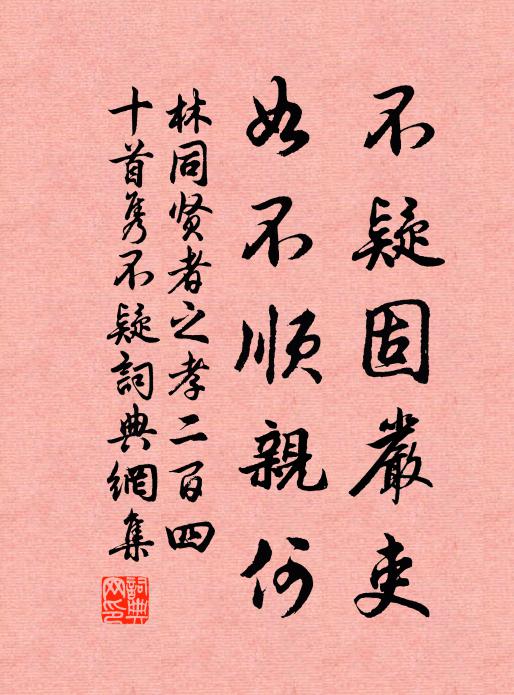 不疑固嚴吏
如不順親何
林同贤者之孝二百四
十首隽不疑詞典網集
詞典
网印